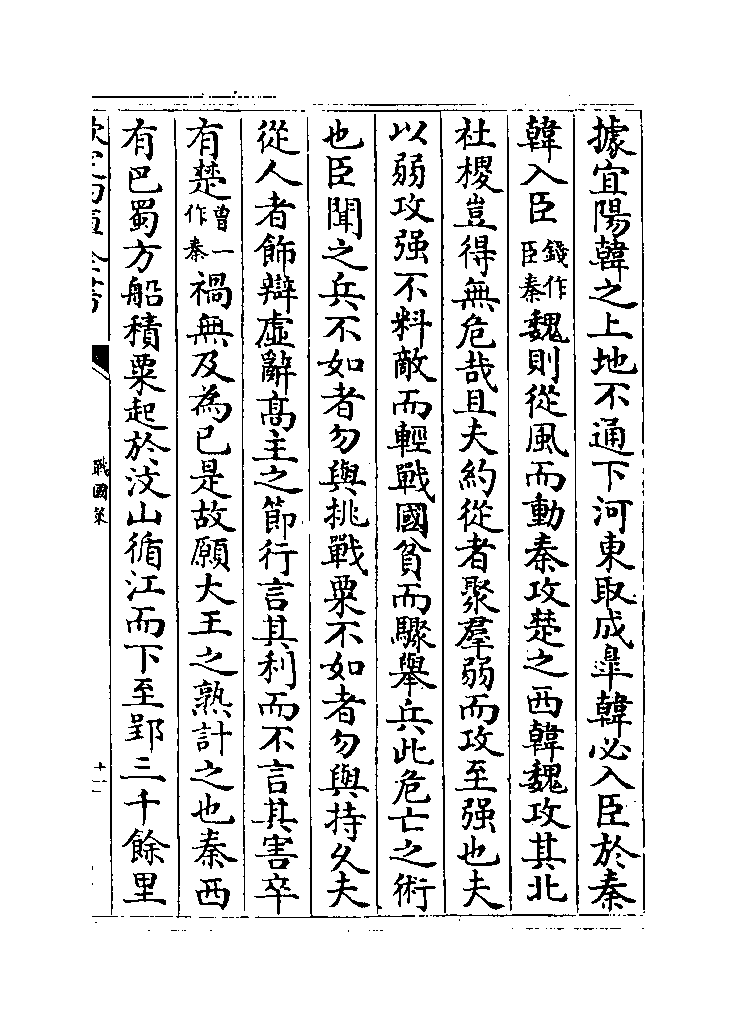 據宜陽韓之上地不通下河東取成臯韓必入臣於秦
韓入臣錢作臣秦魏則從風而動秦攻楚之西韓魏攻其北
社稷豈得無危哉且夫約從者聚羣弱而攻至强也夫
以弱攻强不料敵而輕戰國貧而驟舉兵此危亡之術
也臣聞之兵不如者勿與挑戰粟不如者勿與持久夫
從人者飾辯虛辭髙主之節行言其利而不言其害卒
有楚曾一作秦禍無及為已是故願大王之熟計之也秦西
有巴蜀方船積粟起於汶山循江而下至郢三千餘里
戰國策
十一